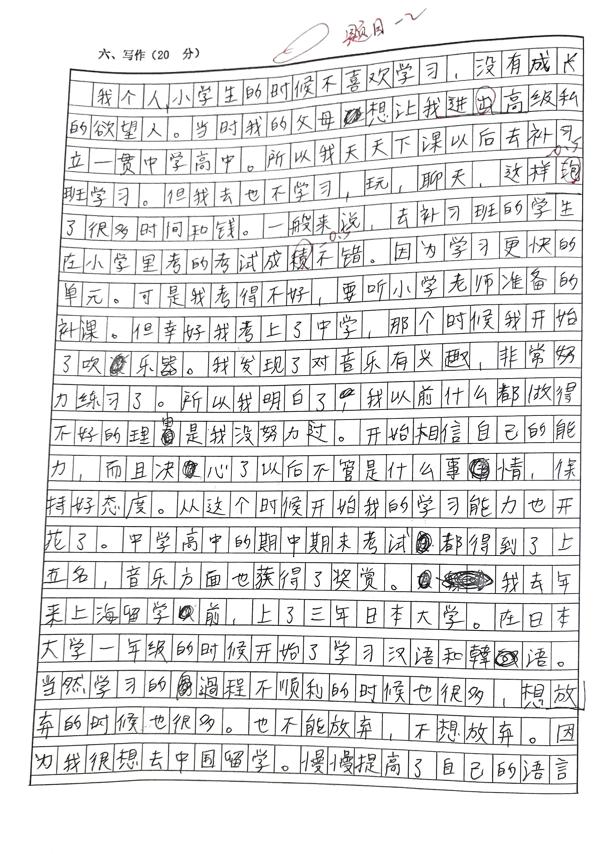 题目-2
六、写作（20 分）
我个人，小学生的时候不喜欢学习，没有成长
的欲望人。当时我的父母想让我进出高级私
立一贯中学高中。所以我天天下课以后去补习
0.5
班学习。但我去也不学习，玩，聊天，这样跑
了很多时间和钱。一般来说，去补习班的学生
0.5
在小学里考的考试成绩不错。因为学习更快的
单元。可是我考得不好，要听小学老师准备的
补课。但幸好我考上了中学，那个时候我开始
了吹乐器。我发现了对音乐有兴趣，非常努
力练习了。所以我明白了，我以前什么都做得
不好的理由是我没努力过。开始相信自己的能
力，而且决心了以后不管是什么事情，保
持好态度。从这个时候开始我的学习能力也开
花了。中学高中的期中期末考试都得到了上
五名，音乐方面也获得了奖赏。我去年
来上海留学前，上了三年日本大学。在日本
大学一年级的时候开始了学习汉语和韓语。
当然学习的過程不顺利的时候也很多，想放
弃的时候也很多。也不能放弃，不想放弃。因
为我很想去中国留学。慢慢提高了自己的语言